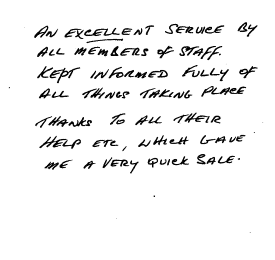 AN EXCELLENT SERVICE BY
ALL MEMBERS of STAFF.
KEPT INFORMED FULLY OF
ALL THINGS TAKING PLACE
THANKS TO ALL THEIR
HELP ETC, WHICH GAVE
ME A VERY QUICK SALE.